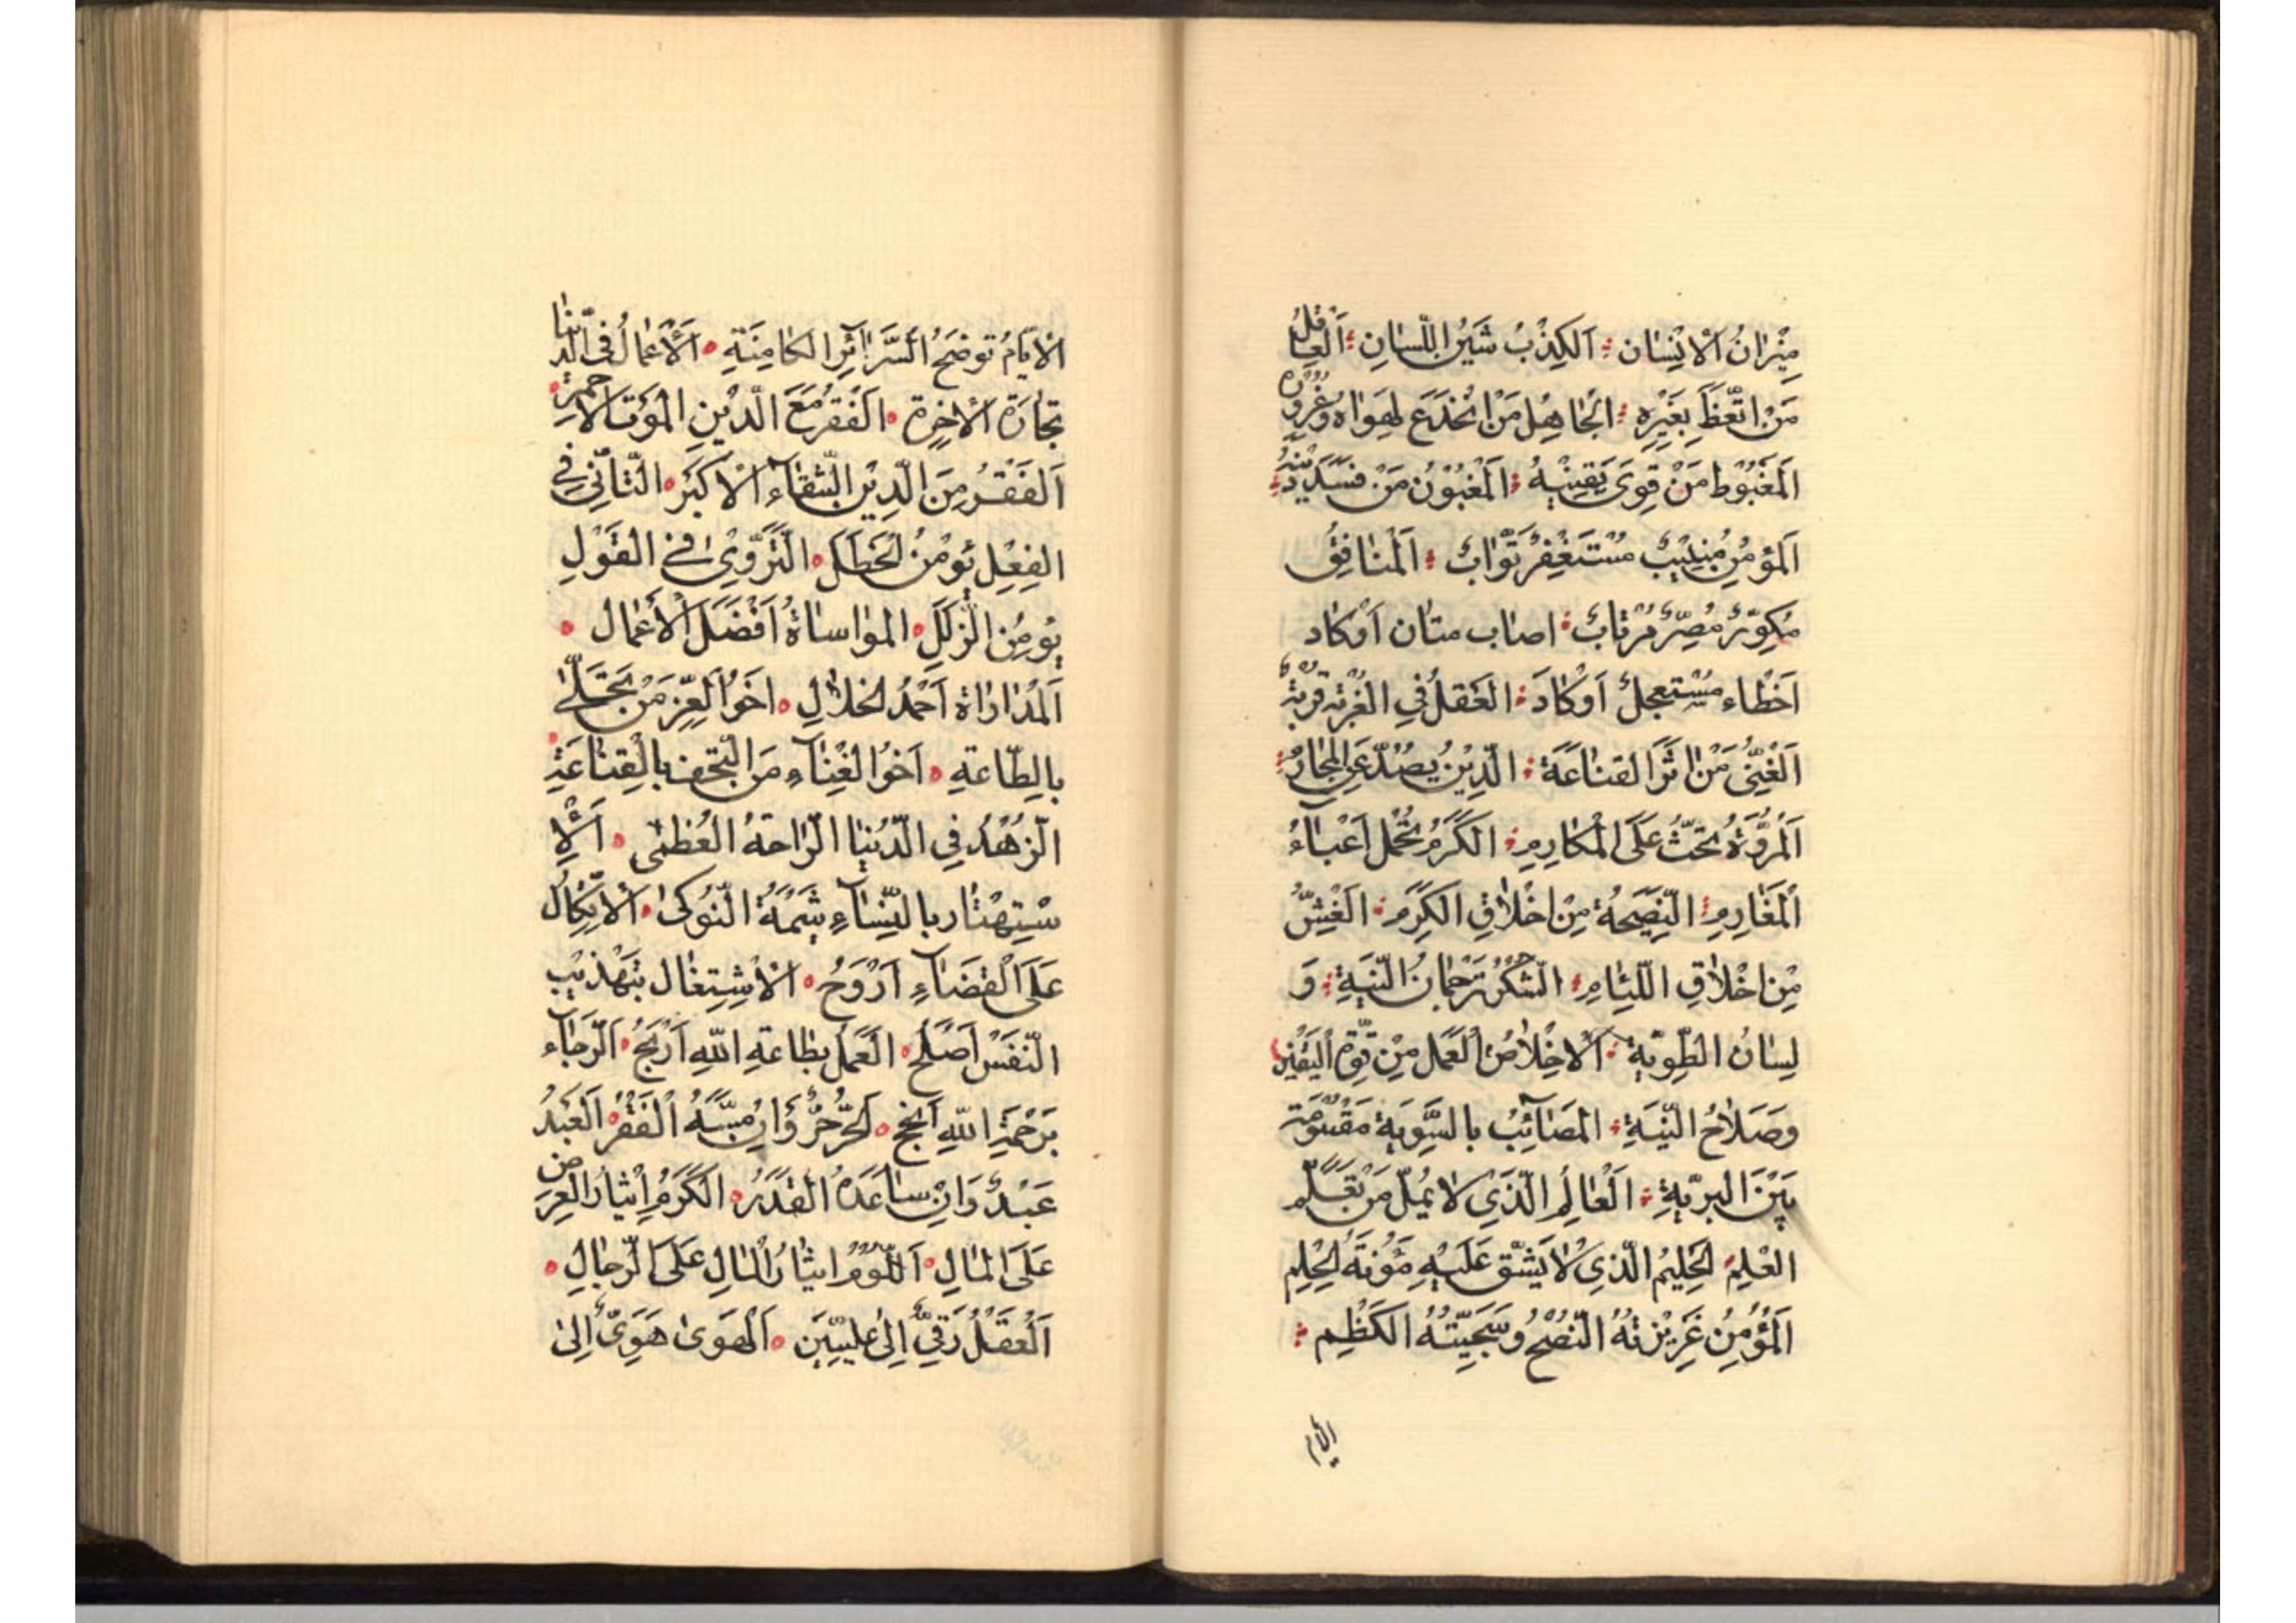 مِيْزانُ الْاِنْسٰان اَلكِذْبُ شَيْنُ اللّسٰانِ اَلْعاقِلُ
مَنْ اتَّعَظَ بِغَيْرِهِ اَلْجٰاهِلُ مَنْ انْخَدَعَ لِهَواهُ وَغُرُورِه
اَلمَغْبُوْطُ مَنْ قَوِىَ يَقِيْنُهُ اَلْمَغْبُوْنُ مَنْ فَسَدَ دِيْنُهُ
اَلمُؤمِنُ مُنِيْبٌ مُسْتَغْفِرٌ تَوّٰابٌ اَلْمُنٰافِقُ
مَكوّرٌ مُصِرٌّ مُرْتابٌ اصٰاب متان اَوْكٰاد
اَخْطاء مُسْتَعجِلٌ اَوْكٰادَ العَقلُ فِي الغُرْبَةِ قُرْبَةٌ
اَلْغَنِيُّ مَنْ اٰثَرَ القَنٰاعَةَ الّدِيْنُ يَصُدُّ عَنِ الْمَحٰارِمُ
اَلْمُرُوَّةُ تَحُثُّ عَلَى الْمَكٰارِمِ الكَرَمُ تَحَمُّل اَعْبٰاءُ
اَلْمَغٰارِمِ النَّصِيْحَةُ مِنْ اَخْلاٰقِ الكَرَمِ الغَشُّ
مِنْ اَخْلاٰقِ اللّئٰامِ الشُّكْرُ تَرْجُمٰانُ النِّيَةِ وَ
لِسٰانُ الطَّوِيَّةِ اَلْاخْلاٰصُ اَلْعَمَلِ مِنْ قُوَّةِ الْيَقِيْنِ
وصَلاٰحُ النِّيَةِ المَصٰائِبُ بالسَّوِيَةِ مَقْسُومَةٌ
بَيْنَ البرِيَّةِ الْعٰالِمُ الّذَيْ لاٰ يَمُلُّ مَنْ تَعَلَّمِ
العْلِمِ الْحَلِيْمُ الّذي لاٰ يَشُقّ عَلَيْهِ مَؤُنَةُ الْحِلْمِ
اَلْمُؤْمِنُ غَرِيْزَتُهُ النُّصْحُ وسَجِيّتُهُ الكَظْمِ
الأيام
الاَيّامُ تُوضِحُ السَّرٰائِرَ الكٰامِنَةِ اَلْاَعْمٰالُ فِي الدّنيٰا
تِجٰارَةُ الْاٰخِرَةِ الفَقْرُ مَعَ الّدَيْنِ المَوْتُ الاَحْمَرُ
اَلفَقْرُ مِنَ الّدَيْنِ الشّقٰاءُ الْاَكْبَرُ التَّأَنّي فِي
الفِعْلِ يُؤْمِنُ الْخَطَلَ التَّرَوّيْ فِي القَوْلِ
يُؤمِنُ الزَّلَلَ المُوٰاسٰاةُ اَفْضَلُ الْأَعْمٰالِ
اَلْمُدٰارٰاةُ اَحْمَدُ الْخلاٰلِ اَخُو اَلْعِزِّ مَنْ تَحَلّىٰ
بالِطّاعَةِ اَخُو الْغِنٰاءِ مَنِ الْتَحَفَ بِالْقِنٰاعَةِ
الزُّهْدُ فِي الدُّنيٰا الرّٰاحَةُ العُظمٰى اَلْاِ
سْتِهْتٰار بالنِّسٰاءِ شِمَةُ النَّوْكىٰ اَلْاِتِّكٰالُ
عَلَى الْقَضٰاءِ اَرْوَحُ الْاِشْتِغٰال بتَهْذيْبِ
النَّفْسِ اَصْلَحُ العَمَلُ بِطٰاعَةِ اللّٰهِ اَرْبَحُ اَلرَّجٰاء
بَرَحْمَةِ اللّٰهِ اَنْجَحُ الْحُرُّ حُرٌّ وَ اِنْ مَسَّهُ الْفَقْرُ اَلْعَبْدُ
عَبْدٌ وَ اِنْ سٰاعَدَهُ القَدَرُ الكَرَمُ اِيْثٰارُ العِرَضِ
عَلَى الْمٰالِ اَللُّؤْمُ ايثٰارُ الْمٰالِ عَلَى الرِّجٰالِ
اَلْعَقْلُ رَقِيٌّ اِلىٰ عِلِيّيْنَ اَلْهَوىٰ هَوِيٌّ اِلىٰ